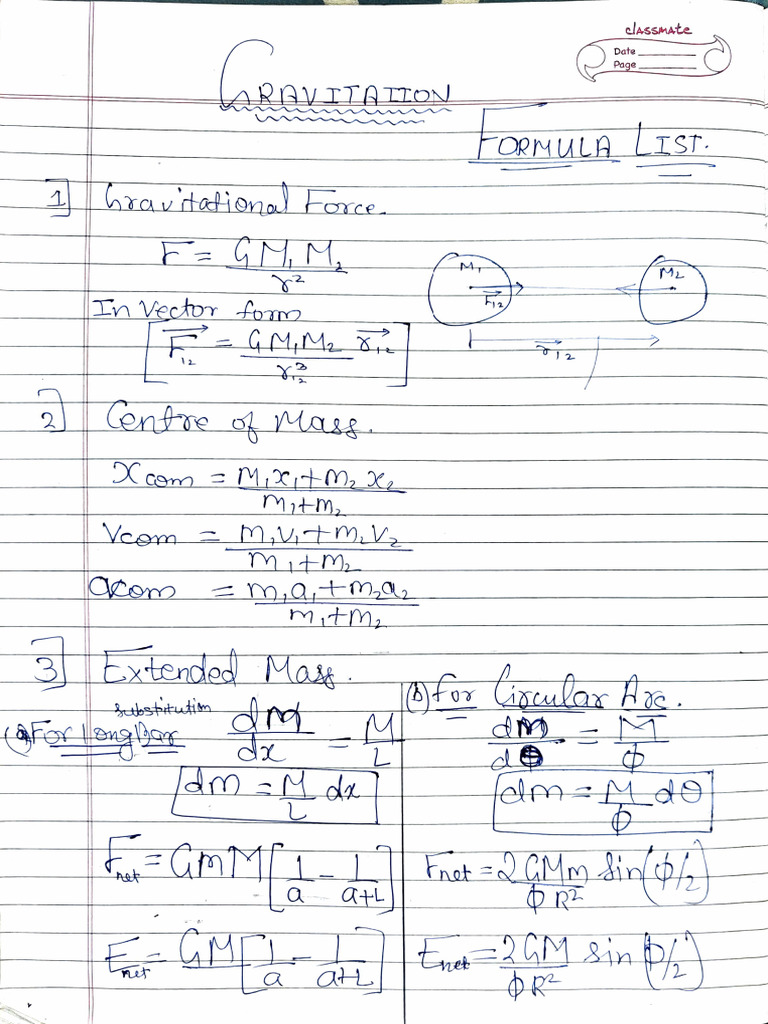 classmate
Date
Page
GRAVITATIION
FORMULA LIST.
1] Gravitational Force.
F = GM₁M₂ / r²
In Vector form
[F₁₂ = GM₁M₂ / r₁₂³ r₁₂]
M₁
F₁₂
M₂
r₁₂
2] Centre of Mass.
Xcom = M₁x₁+m₂x₂ / m₁+m₂
Vcom = m₁v₁+m₂v₂ / m₁+m₂
acom = m₁a₁+m₂a₂ / m₁+m₂
3] Extended Mass.
substitution
(a) For Long Bar
dM/dx = M/L
dm = M/L dx
Fnet = GmM [1/a − 1/a+L]
Enet = GM [1/a − 1/a+L]
(b) For Circular Arc.
dM/dθ = M/ϕ
dm = M/ϕ dθ
Fnet = 2GMm / ϕR² sin(ϕ/2)
Enet = 2GM / ϕR² sin(ϕ/2)